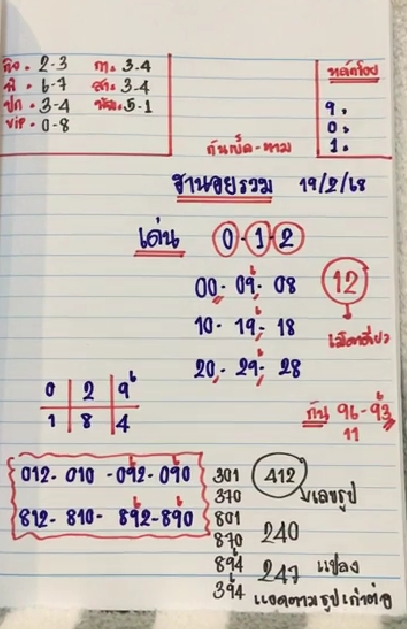 กิจ. 2-3 กา. 3-4
พี. 6-7 สา. 3-4
ปก. 3-4 พัน. 5-1
VIP. 0-8
หลักร้อย
9.
0.
1.
กันเบิ้ล-หาม
ฮานอยรวม 19/2/68
เด่น 0-1-2
00-09-08 12
10-19-18 เม็ดเดียว
20-29-28
0 2 9
1 8 4
กัน 96-93
11
012-010-092-090
812-810-892-890
301 412 เลขรูป
370
801 240
870
894 247 แปลง
394 แยกตามรูปเก่าต่อ